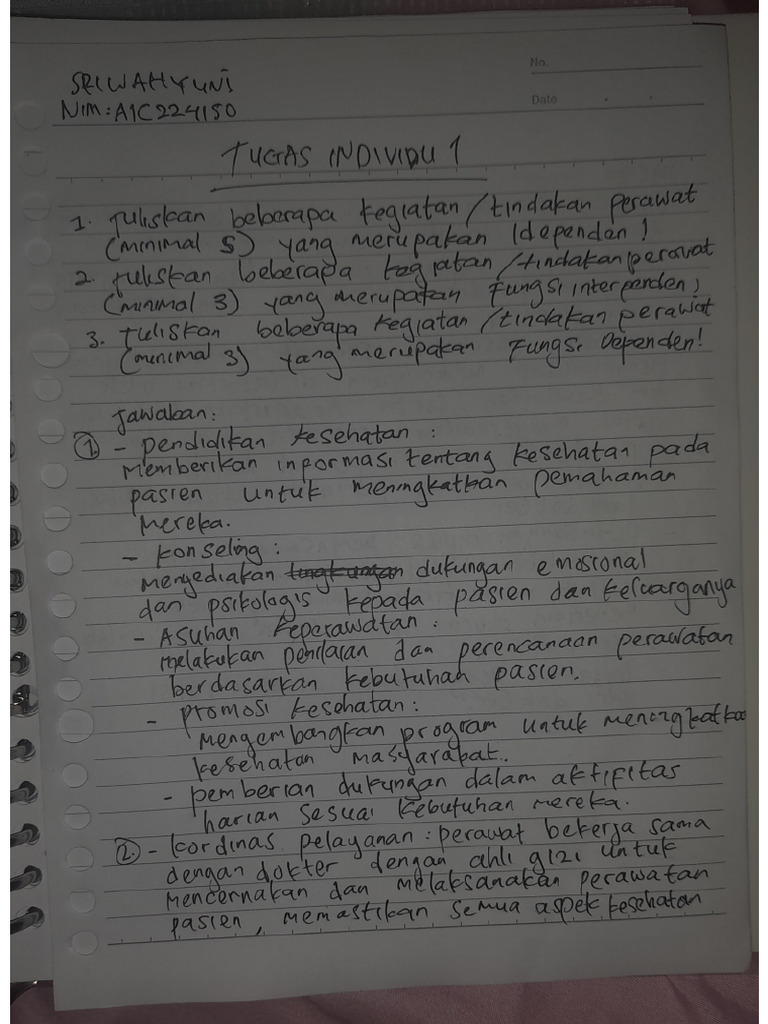 No.
SRIWAHYUNI
NIM: A1C224150
Date
TUGAS INDIVIDU 1
1. Tuliskan beberapa kegiatan/tindakan perawat
(minimal 5) yang merupakan Idependen!
2. Tuliskan beberapa kegiatan/tindakan perawat
(minimal 3) yang merupakan Fungsi interpenden;
3. Tuliskan beberapa kegiatan/tindakan perawat
(minimal 3) yang merupakan Fungsi Dependen!
Jawaban:
① - pendidikan kesehatan :
Memberikan informasi tentang kesehatan pada
pasien untuk meningkatkan pemahaman
mereka.
- konseling :
menyediakan dukungan emosional
dan psikologis kepada pasien dan keluarganya
- Asuhan keperawatan :
melakukan penilaian dan perencanaan perawatan
berdasarkan kebutuhan pasien.
- promosi kesehatan :
mengembangkan program untuk meningkatkan
kesehatan masyarakat.
- pemberian dukungan dalam aktifitas
harian sesuai kebutuhan mereka.
②. - kordinas pelayanan : perawat bekerja sama
dengan dokter dengan ahli gizi untuk
mencernakan dan melaksanakan perawatan
pasien, memastikan semua aspek kesehatan